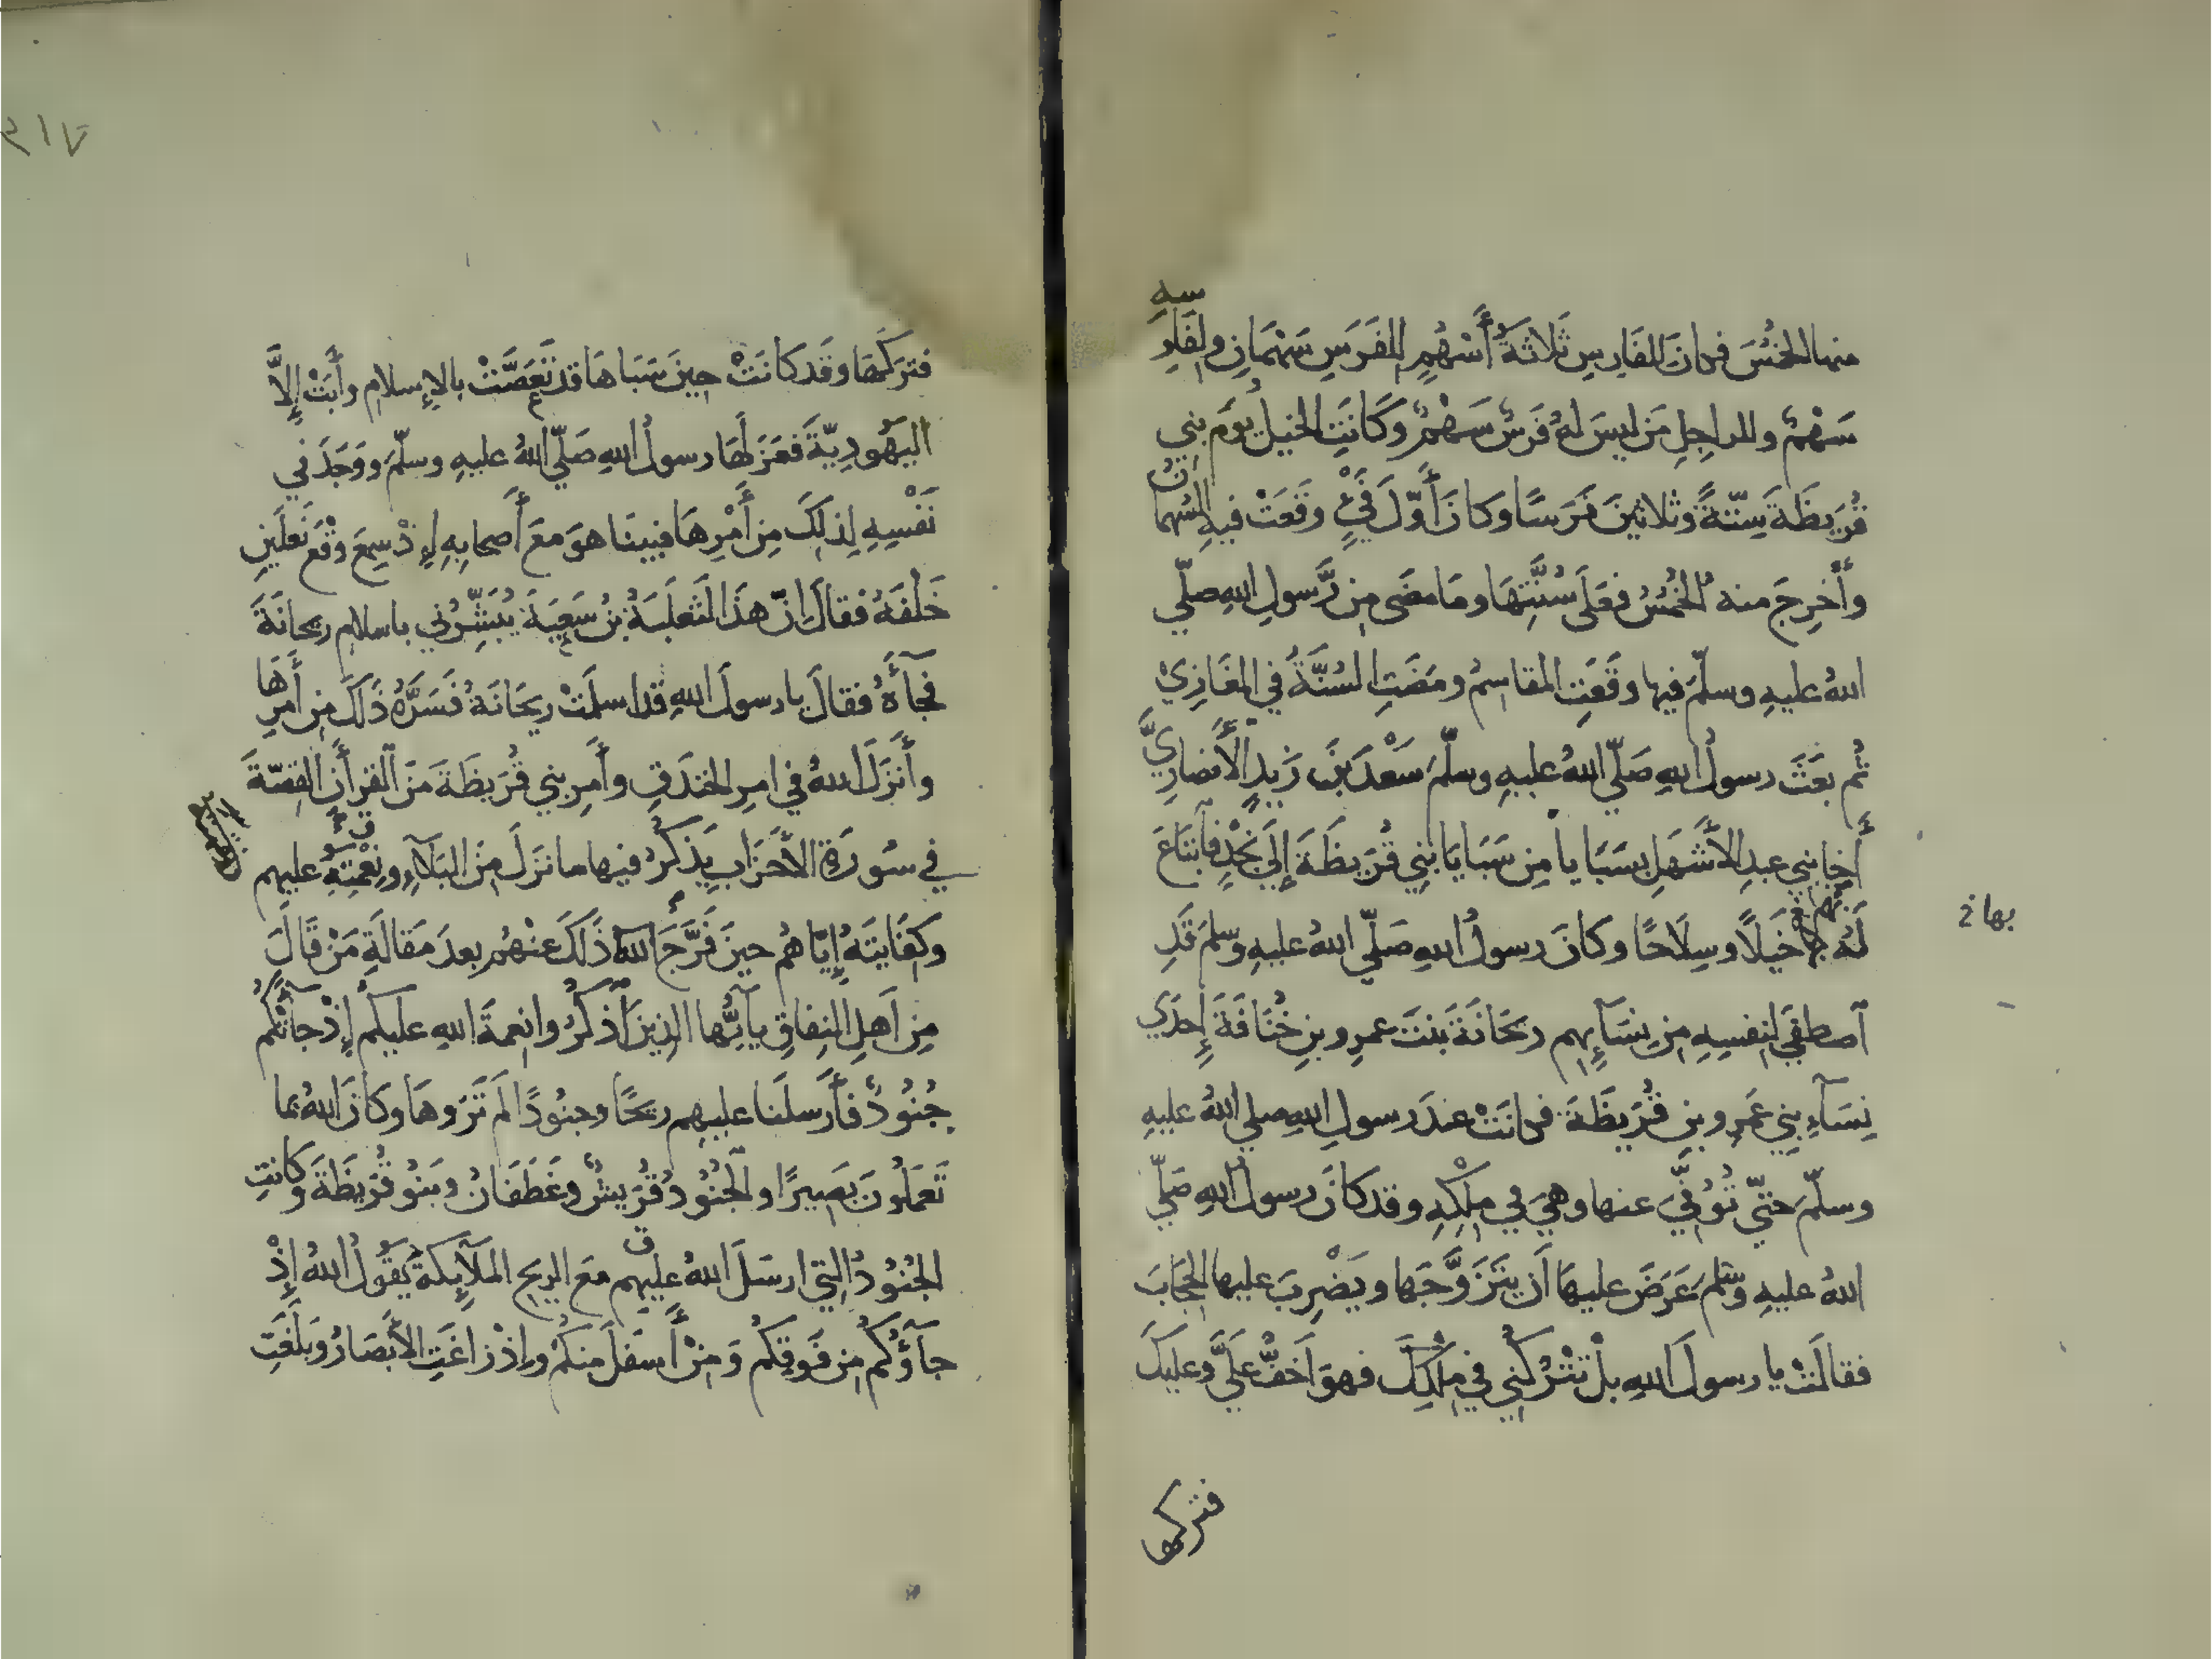 منها الخُمُسَ فكانَ للفَارِسِ ثَلاثَةُ أَسْهُمٍ للفَرَسِ سَهْمَانِ ولِفَارِسِهِ
سَهْمٌ وللراجِلِ مَن ليسَ لهُ فَرَسٌ سَهْمٌ وكَانَتِ الخيلُ يَومَ بنِي
قُرَيظَةَ سِتّةً وثلاثينَ فَرَسًا وكانَ أَوّلَ فَيْءٍ وقَعَتْ فيهِ السُّهمانُ
وأُخرِجَ منه الخُمُسُ فعَلَى سُنَّتِهَا ومَا مضَى مِن رَّسولِ اللهِ صلّي
اللهُ عليهِ وسلّمَ فيها وقَعَتِ المقاسِمُ ومَضَتِ السُنَّةُ في المغَازِيْ
ثُم بعَثَ رسولُ اللهِ صَلّي اللهُ عليهِ وسلّمَ سَعْدَ بنَ زَيدٍ الأَنصارِيَّ
أَخا بني عبدِ الأَشهَلِ بسَبَايا مِن سَبَايَا بني قُرَيظَةَ إلَى نَجْدٍ فَآبتَاعَ
لَهُ بها خَيلًا وسِلَاحًا وكانَ رسولُ اللهِ صَلّي اللهُ عليهِ وسلمَ قَدِ
بها خ
آصطفَي لنفسِهِ مِن نِسَآئِهِم رَيحَانَةَ بنتَ عمرِو بنِ خُنَافَةَ إحدَي
نِسَآءِ بنِي عَمرِو بنِ قُرَيظَةَ فكانَتْ عندَ رسولِ اللهِ صلي اللهُ عليهِ
وسلّمَ حتّي تُوُفِّيَ عنها وهيَ في مِلْكِهِ وقد كانَ رسولُ اللهِ صَلّي
اللهُ عليهِ وسلمَ عَرَضَ عليهَا أن يتَزَوَّجَها ويَضْرِبَ عليها الحِجَابَ
فقالَتْ يا رسولَ اللهِ بلْ تَتْرُكُنِي في مِلْكِكَ فهوَ أَخفُّ علَيَّ وعليكَ
فتركها
٢١٧
فتَرَكَهَا وقَد كانَتْ حِينَ سَبَاهَا قد تَعَصَّتْ بالإِسلامِ وأَبَتْ إلاَّ
اليَهُودِيّةَ فعَزَلَهَا رسولُ اللهِ صَلّي اللهُ عليهِ وسلّمَ ووَجَدَ في
نَفْسِهِ لِذلِكَ مِن أَمْرِهَا فبينَا هوَ معَ أَصحابِهِ إِذْ سمِعَ وقْعَ نَعلَينِ
خَلْفَهُ فقالَ إنّ هذَا لَثَعلَبَةُ بنُ سَعِيَةَ يُبَشِّرُني باسلامِ ريحَانَةَ
فجآءَهُ فقالَ يا رسولَ اللهِ قد اسلَمَتْ ريحَانَةُ فَسَرَّهُ ذَلكَ مِن أَمرِهَا
وأَنزَلَ اللهُ في امرِ الخندَقِ وأَمرِ بني قُرَيظَةَ مَنَ القرأنِ القِصّةَ
في سُورَةِ الأَحزَابِ يَذكُرُ فيها ما نزَلَ مِنَ البَلآءِ ونِعْمَتِهِ عليهِم
وكِفَايتَهُ إيّاهُم حينَ فَرَّجَ اللهُ ذَلكَ عنْهُم بعدَ مَقالَةِ مَنْ قَالَ
مِن أَهلِ النِفاقِ يآيُّها الذِينَ آذكُرُوا نِعمةَ اللهِ عليكُمْ إِذْ جآئَتْكُم
جُنُودٌ فأَرسلَنا عليهِم ريحًا وجنُودًا لَم تَرَوهَا وكَانَ اللهُ بما
تَعمَلُونَ بَصِيرًا والجُنُودُ قُرَيشٌ وغَطَفَانُ وبَنُو قُرَيظَةَ وكانتِ
الجُنُودُ التِي ارسَلَ اللهُ عليهِم معَ الريحِ المَلآئِكةُ يَقُولُ اللهُ إذْ
جآؤُكُم مِن فَوقِكُم وَمِنْ أَسفلَ مِنكُم وإِذْ زاغَتِ الأَبصَارُ وبَلَغَتِ